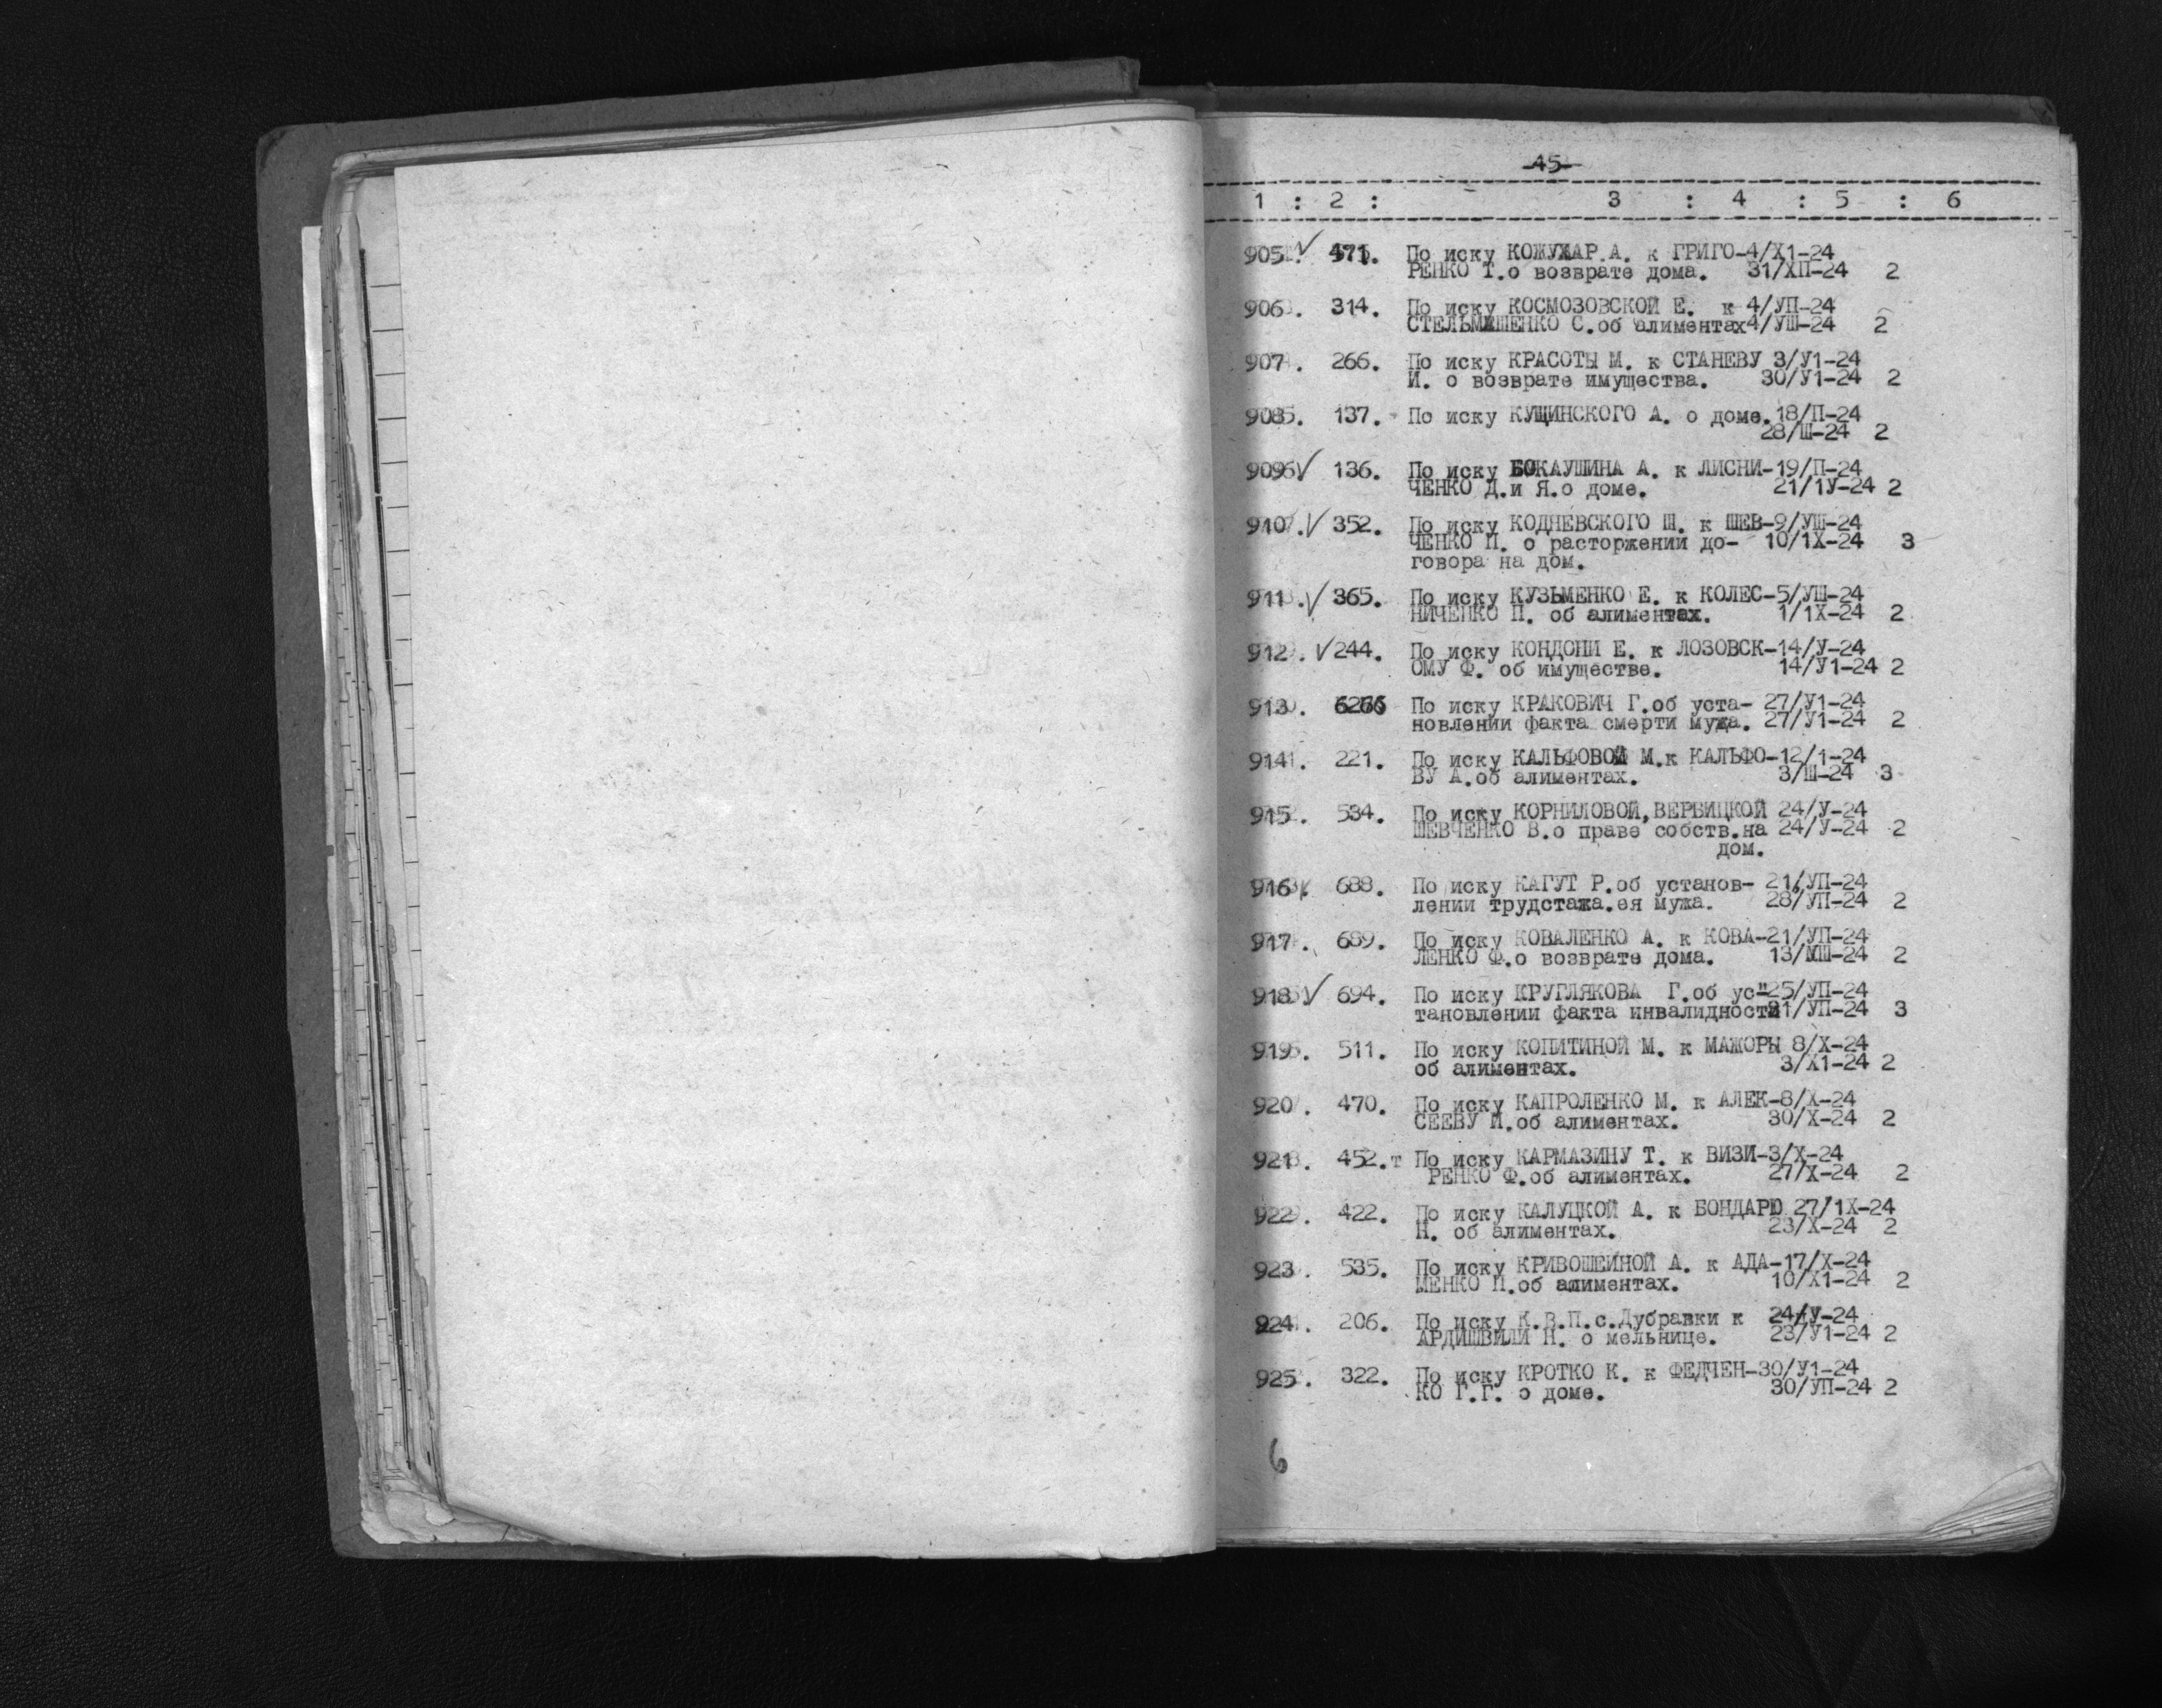 -45-
1 : 2 : 3 : 4 : 5 : 6
905. 471. По иску КОЖУХАР.А. к ГРИГО-4/Х1-24
РЕНКО Т.о возврате дома. 31/ХП-24 2
906. 314. По иску КОСМОЗОВСКОЙ Е. к 4/УП-24
СТЕЛЬМАШЕНКО С.об алиментах4/УШ-24 2
907. 266. По иску КРАСОТЫ М. к СТАНЕВУ 3/У1-24
И. о возврате имущества. 30/У1-24 2
908. 137. По иску КУЩИНСКОГО А. о доме.18/П-24
28/Ш-24 2
909 136. По иску БОКАУШИНА А. к ЛИСНИ-19/П-24
ЧЕНКО Д.и Я.о доме. 21/1У-24 2
910. 352. По иску КОДНЕВСКОГО Ш. к ШЕВ-9/УШ-24
ЧЕНКО П. о расторжении до- 10/1Х-24 3
говора на дом.
911. 365. По иску КУЗЬМЕНКО Е. к КОЛЕС-5/УШ-24
НИЧЕНКО П. об алиментах. 1/1Х-24 2
912. 244. По иску КОНДОНИ Е. к ЛОЗОВСК-14/У-24
ОМУ Ф. об имуществе. 14/У1-24 2
913. По иску КРАКОВИЧ Г.об уста- 27/У1-24
новлении факта смерти мужа. 27/У1-24 2
914. 221. По иску КАЛЬФОВОЙ М.к КАЛЬФО-12/1-24
ВУ А.об алиментах. 3/Ш-24 3
915. 534. По иску КОРНИЛОВОЙ,ВЕРБИЦКОЙ 24/У-24
ШЕВЧЕНКО В.о праве собств.на 24/У-24 2
дом.
916. 688. По иску КАГУТ Р.об установ- 21/УП-24
лении трудстажа.ея мужа. 28/УП-24 2
917. 689. По иску КОВАЛЕНКО А. к КОВА-21/УП-24
ЛЕНКО Ф.о возврате дома. 2
918 694. По иску КРУГЛЯКОВА Г.об ус-25/УП-24
тановлении факта инвалидности /УП-24 3
919. 511. По иску КОПИТИНОЙ М. к МАЖОРЫ 8/Х-24
об алиментах. 3/Х1-24 2
920. 470. По иску КАПРОЛЕНКО М. к АЛЕК-8/Х-24
СЕЕВУ И.об алиментах. 30/Х-24 2
921. 452.т По иску КАРМАЗИНУ Т. к ВИЗИ-3/Х-24
РЕНКО Ф.об алиментах. 27/Х-24 2
922. 422. По иску КАЛУЦКОЙ А. к БОНДАРЮ 27/1Х-24
Н. об алиментах. 23/Х-24 2
923. 535. По иску КРИВОШЕИНОЙ А. к АДА-17/Х-24
МЕНКО П.об алиментах. 10/Х1-24 2
924. 206. По иску К.В.П.с.Дубравки к 24/У-24
АРДИШВИЛИ Н. о мельнице. 23/У1-24 2
925. 322. По иску КРОТКО К. к ФЕДЧЕН-30/У1-24
КО Г.Г. о доме. 30/УП-24 2
6